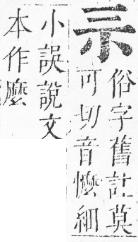 俗字舊註莫
可切音懡細
小誤說文
本作麼